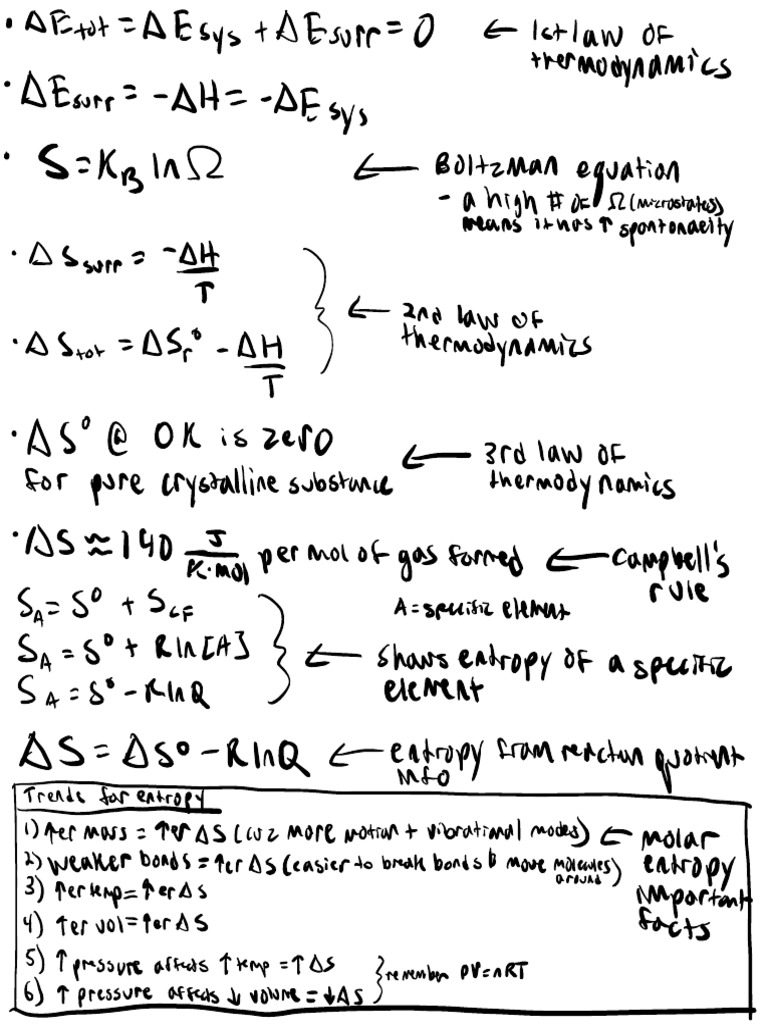 • ΔE_tot = ΔE_sys + ΔE_surr = 0 ← 1st law of thermodynamics
• ΔE_surr = -ΔH = -ΔE_sys
• S = K_B ln Ω ← Boltzman equation
- a high # of Ω (microstates)
means it has ↑ spontaneity
• ΔS_surr = -ΔH/T
• ΔS_tot = ΔS_r° - ΔH/T
← 2nd law of
thermodynamics
• ΔS° @ 0K is zero
for pure crystalline substance
← 3rd law of
thermodynamics
• ΔS ≈ 140 J/K·mol per mol of gas formed ← Campbell's rule
S_A = S° + S_CF
A = specific element
S_A = S° + R ln [A]
S_A = S° - R ln Q
← shows entropy of a specific
element
ΔS = ΔS° - R ln Q ← entropy from reaction quotient
info
Trends for entropy
1) ↑er mass = ↑er ΔS (cuz more motion + vibrational modes)
2) weaker bonds = ↑er ΔS (easier to break bonds & move molecules around)
3) ↑er temp = ↑er ΔS
4) ↑er vol = ↑er ΔS
5) ↑ pressure affects ↑ temp = ↑ ΔS
6) ↑ pressure affects ↓ volume = ↓ ΔS
remember PV=nRT
← molar
entropy
important
facts